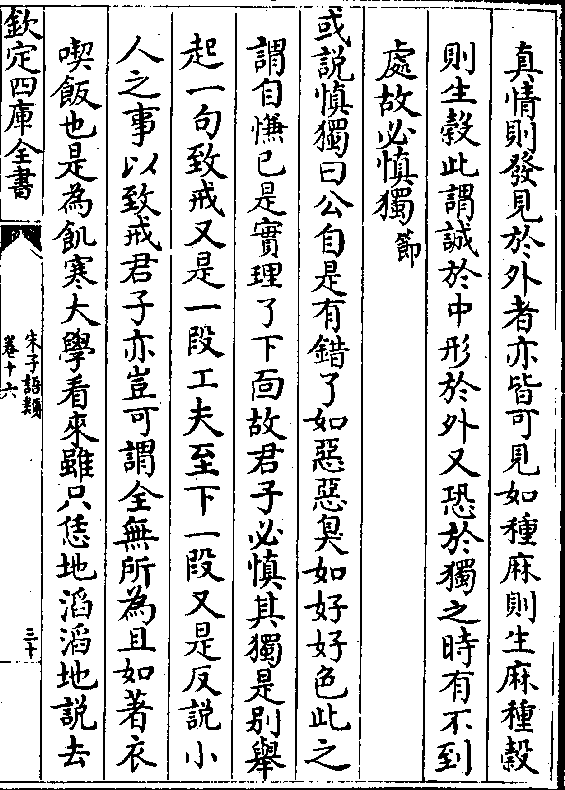 真情則發見於外者亦皆可見如種麻則生麻種穀
則生穀此謂誠於中形於外又恐於獨之時有不到
處故必慎獨節
或説慎獨曰公自是有錯了如惡惡臭如好好色此之
謂自慊已是實理了下面故君子必慎其獨是别舉
起一句致戒又是一段工夫至下一段又是反説小
人之事以致戒君子亦豈可謂全無所為且如著衣
喫飯也是為飢寒大學看來雖只恁地滔滔地説去
欽定四庫全書
朱子語類
卷十六
三十